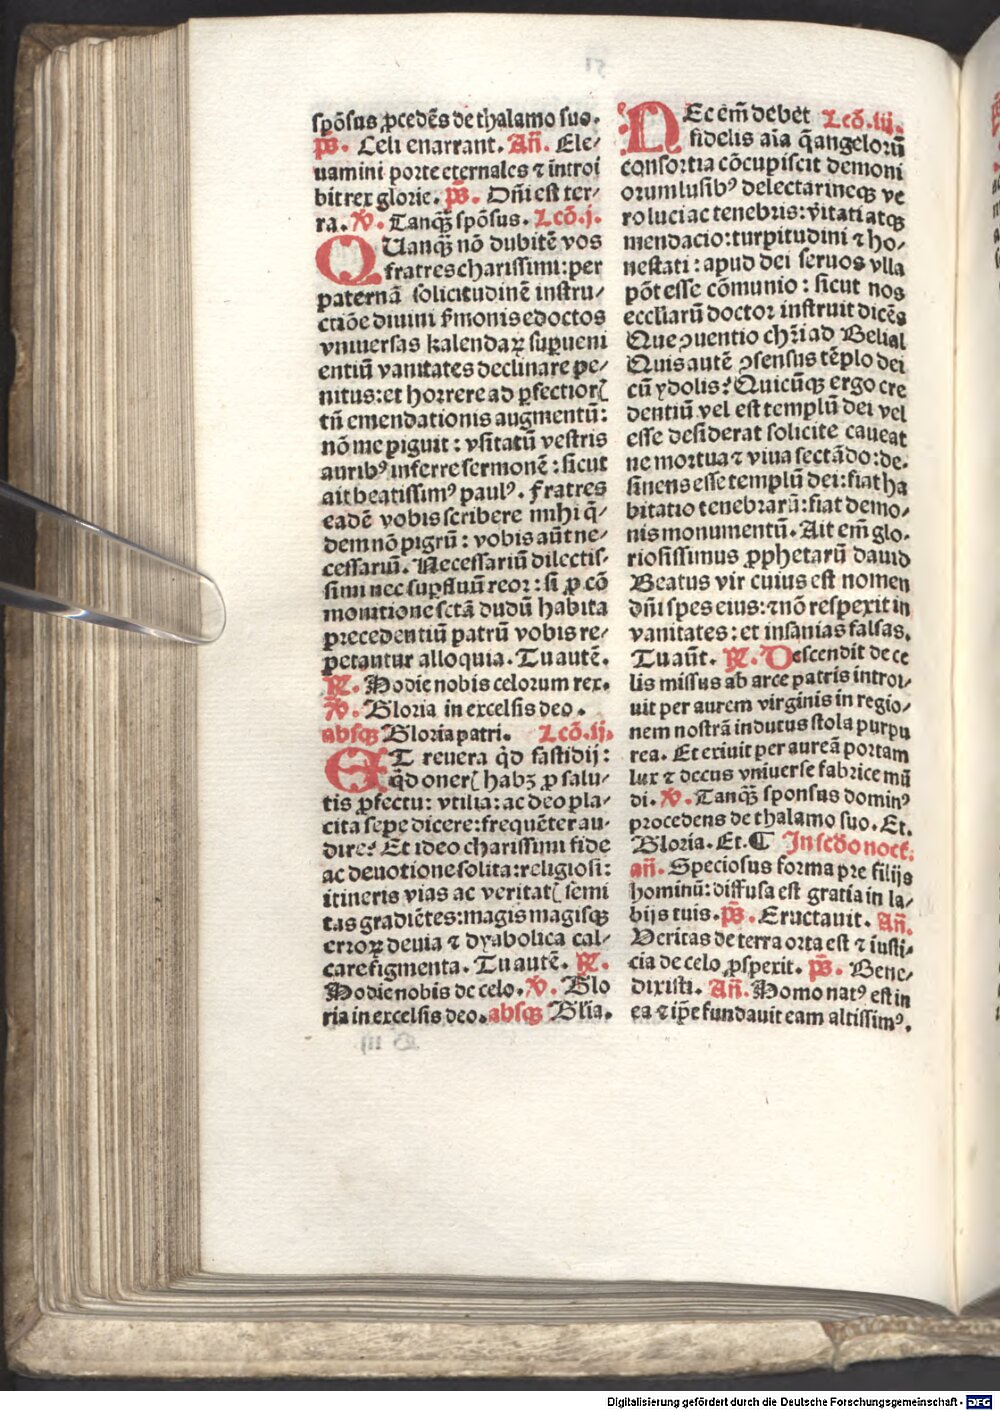 spōsus ꝓcedēs de thalamo suo.
p̄s. Celi enarrant. An̄. Ele⸗
uamini porte eternales ⁊ introi
bit rex glorie. p̄s. Dn̄i est ter⸗
ra. ℣. Tanqȝ spōsus. Lcō.j.
QUanqȝ nō dubitē vos
fratres charissimi: per
paternā solicitudinē instru⸗
ctiōe diuini s̄monis edoctos
vniuersas kalendaꝝ suꝑueni
entiū vanitates declinare pe⸗
nitus: et horrere ad ꝑfectiorꝭ
tn̄ emendationis augmentū:
nō me piguit: vsitatū vestris
auribꝰ inferre sermonē: sicut
ait beatissimꝰ paulꝰ. Fratres
eadē vobis scribere mihi q̄⸗
dem nō pigrū: vobis aūt ne⸗
cessariū. Necessariū dilectis⸗
simi nec suꝑfluū reor: si ꝓ cō
monitione sctā dudū habita
precedentiū patrū vobis re⸗
petantur alloquia. Tu autē.
℟. Hodie nobis celorum rex.
℣. Gloria in excelsis deo.
absqȝ Gloria patri. Lcō.ij.
ET reuera qd̄ fastidij:
qd̄ onerꝭ habȝ ꝓ salu⸗
tis ꝓfectu: vtilia: ac deo pla⸗
cita sepe dicere: frequēter au⸗
dire? Et ideo charissimi fide
ac deuotione solita: religiosi:
itineris vias ac veritatꝭ semi
tas gradiētes: magis magisqȝ
erroꝝ deuia ⁊ dyabolica cal⸗
care figmenta. Tu autē. ℟.
Hodie nobis de celo. ℣. Glo
ria in excelsis deo. absqȝ Gl̄ia.
NEc em̄ debet Lcō.iij.
fidelis aīa q̄ angelorū
consortia cōcupiscit demoni
orum lusibꝰ delectari necqȝ ve
ro luci ac tenebris: v̄itati atqȝ
mendacio: turpitudini ⁊ ho⸗
nestati: apud dei seruos vlla
pōt esse cōmunio: sicut nos
eccl̄iarū doctor instruit dicēs
Que ꝯuentio chr̄i ad Belial
Quis autē ꝯsensus tēplo dei
cū ydolis? Quicūqȝ ergo cre
dentiū vel est templū dei vel
esse desiderat solicite caueat
ne mortua ⁊ viua sectādo: de⸗
sinens esse templū dei: fiat ha
bitatio tenebrarū: fiat demo⸗
nis monumentū. Ait em̄ glo⸗
riosissimus ꝓphetarū dauid
Beatus vir cuius est nomen
dn̄i spes eius: ⁊ nō respexit in
vanitates: et insanias falsas.
Tu aūt. ℟. Descendit de ce
lis missus ab arce patris introi⸗
uit per aurem virginis in regio⸗
nem nostrā indutus stola purpu
rea. Et exiuit per aureā portam
lux ⁊ decus vniuerse fabrice mū
di. ℣. Tanqȝ sponsus dominꝰ
procedens de thalamo suo. Et.
Gloria. Et. ¶ In scd̄o noct̄.
an̄. Speciosus forma pre filijs
hominū: diffusa est gratia in la⸗
bijs tuis. p̄s. Eructauit. An̄.
Veritas de terra orta est ⁊ iusti⸗
cia de celo ꝓspexit. p̄s. Bene⸗
dixisti. An̄. Homo natꝰ est in
ea ⁊ ip̄e fundauit eam altissimꝰ.
Digitalisierung gefördert durch die Deutsche Forschungsgemeinschaft - DFG